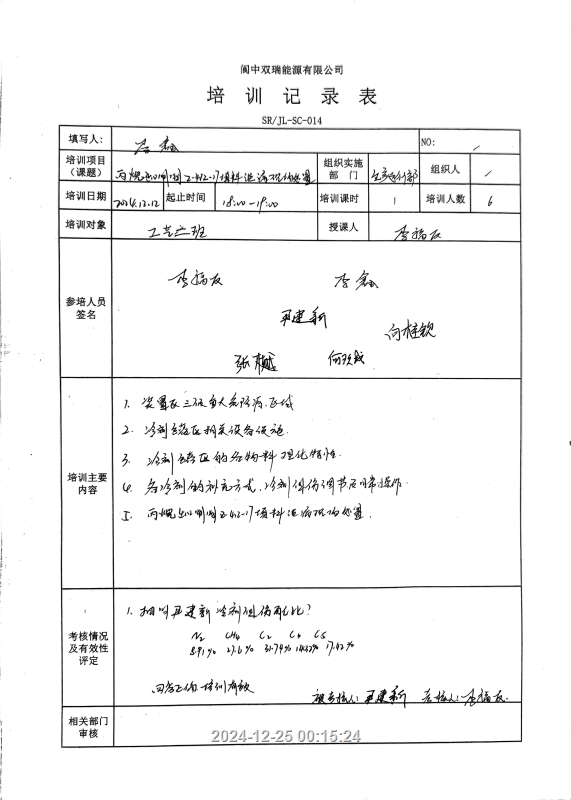 阆中双瑞能源有限公司
培训记录表
SR/JL-SC-014
填写人： 李鑫 NO: /
培训项目（课题） 丙烷 填料泄漏现场处置 组织实施部门 生产运行部 组织人 /
培训日期 2024.12.12 起止时间 18:00-19:00 培训课时 1 培训人数 6
培训对象 工艺三班 授课人 李福友
参培人员签名
李福友 李鑫
尹建新
向梓钦
张
培训主要内容
1. 装置区三级重大危险源区域
2. 冷剂储存区相关设备设施.
3. 冷剂储存区的各物料理化特性.
4. 各冷剂的补充方式,冷剂组份调节及日常操作.
5. 丙烷 填料泄漏现场处置.
考核情况及有效性评定
1. 抽问尹建新冷剂组份配比?
N₂ CH₄ C₂ C₃ C₅
8.91% 27.6% 31.79% 17.42%
回答正确 培训有效
被考核人: 尹建新 考核人: 李福友.
相关部门审核
2024-12-25 00:15:24